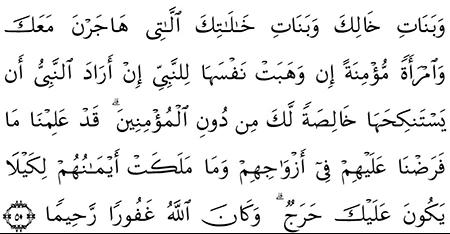 وَبَنَاتِ خَالِكَ وَبَنَاتِ خَٰلَٰتِكَ ٱلَّٰتِى هَاجَرْنَ مَعَكَ
وَٱمْرَأَةً مُّؤْمِنَةً إِن وَهَبَتْ نَفْسَهَا لِلنَّبِىِّ إِنْ أَرَادَ ٱلنَّبِىُّ أَن
يَسْتَنكِحَهَا خَالِصَةً لَّكَ مِن دُونِ ٱلْمُؤْمِنِينَ ۗ قَدْ عَلِمْنَا مَا
فَرَضْنَا عَلَيْهِمْ فِىٓ أَزْوَٰجِهِمْ وَمَا مَلَكَتْ أَيْمَٰنُهُمْ لِكَيْلَا
يَكُونَ عَلَيْكَ حَرَجٌ ۗ وَكَانَ ٱللَّهُ غَفُورًا رَّحِيمًا ۝٥٠